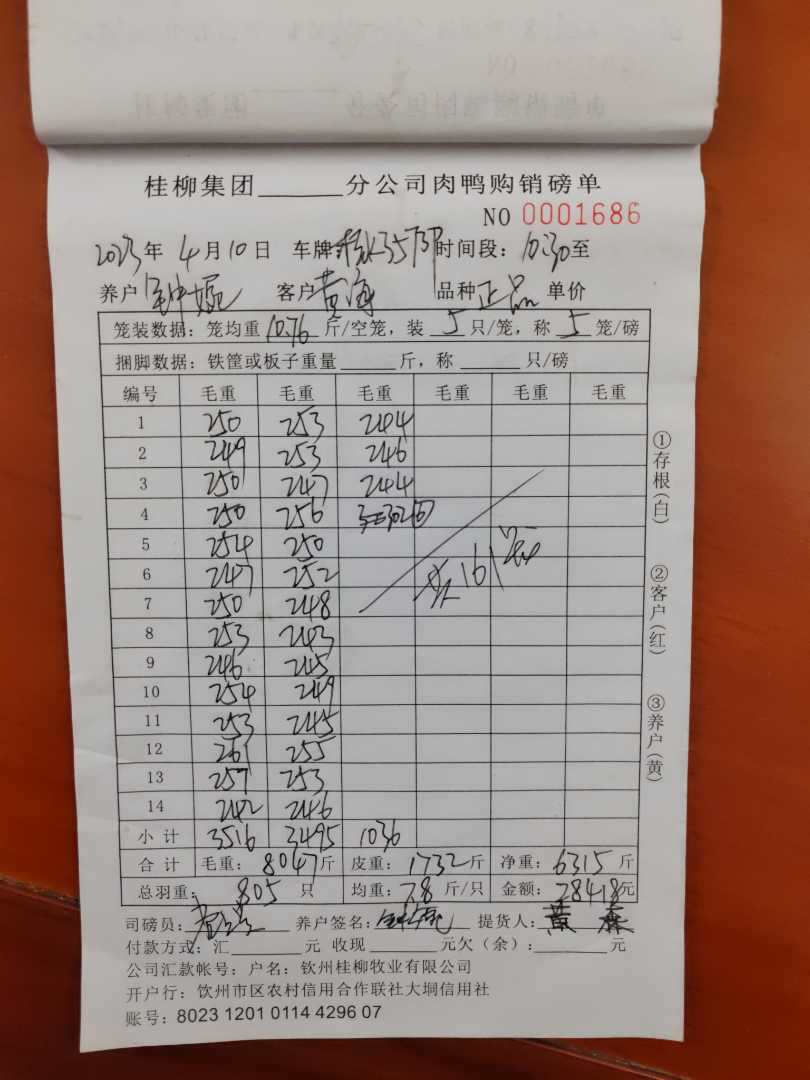 桂柳集团______分公司肉鸭购销磅单
NO 0001686
2023年 4月10日 车牌 时间段：10:30至
养户 钟婉 客户 黄海 品种 正品 单价
笼装数据：笼均重 10.76 斤/空笼，装 5 只/笼，称 5 笼/磅
捆脚数据：铁筐或板子重量______斤，称______只/磅
编号 毛重 毛重 毛重 毛重 毛重 毛重
1 250 253 244
2 249 253 246
3 250 247 244
4 250 256
5 254 250
6 247 252
7 250 248
8 253 243
9 246 245
10 254 249
11 253 245
12 261 255
13 257 253
14 242 246
共161笼
小计 3516 3495 1036
合计 毛重：8047斤 皮重：1732斤 净重：6315斤
总羽重：805 只 均重：7.8 斤/只 金额：28418元
司磅员： 养户签名： 提货人：黄森
付款方式：汇______元 收现______元欠（余）：______元
公司汇款帐号：户名：钦州桂柳牧业有限公司
开户行：饮州市区农村信用合作联社大垌信用社
账号：8023 1201 0114 4296 07
①存根（白）
②客户（红）
③养户（黄）